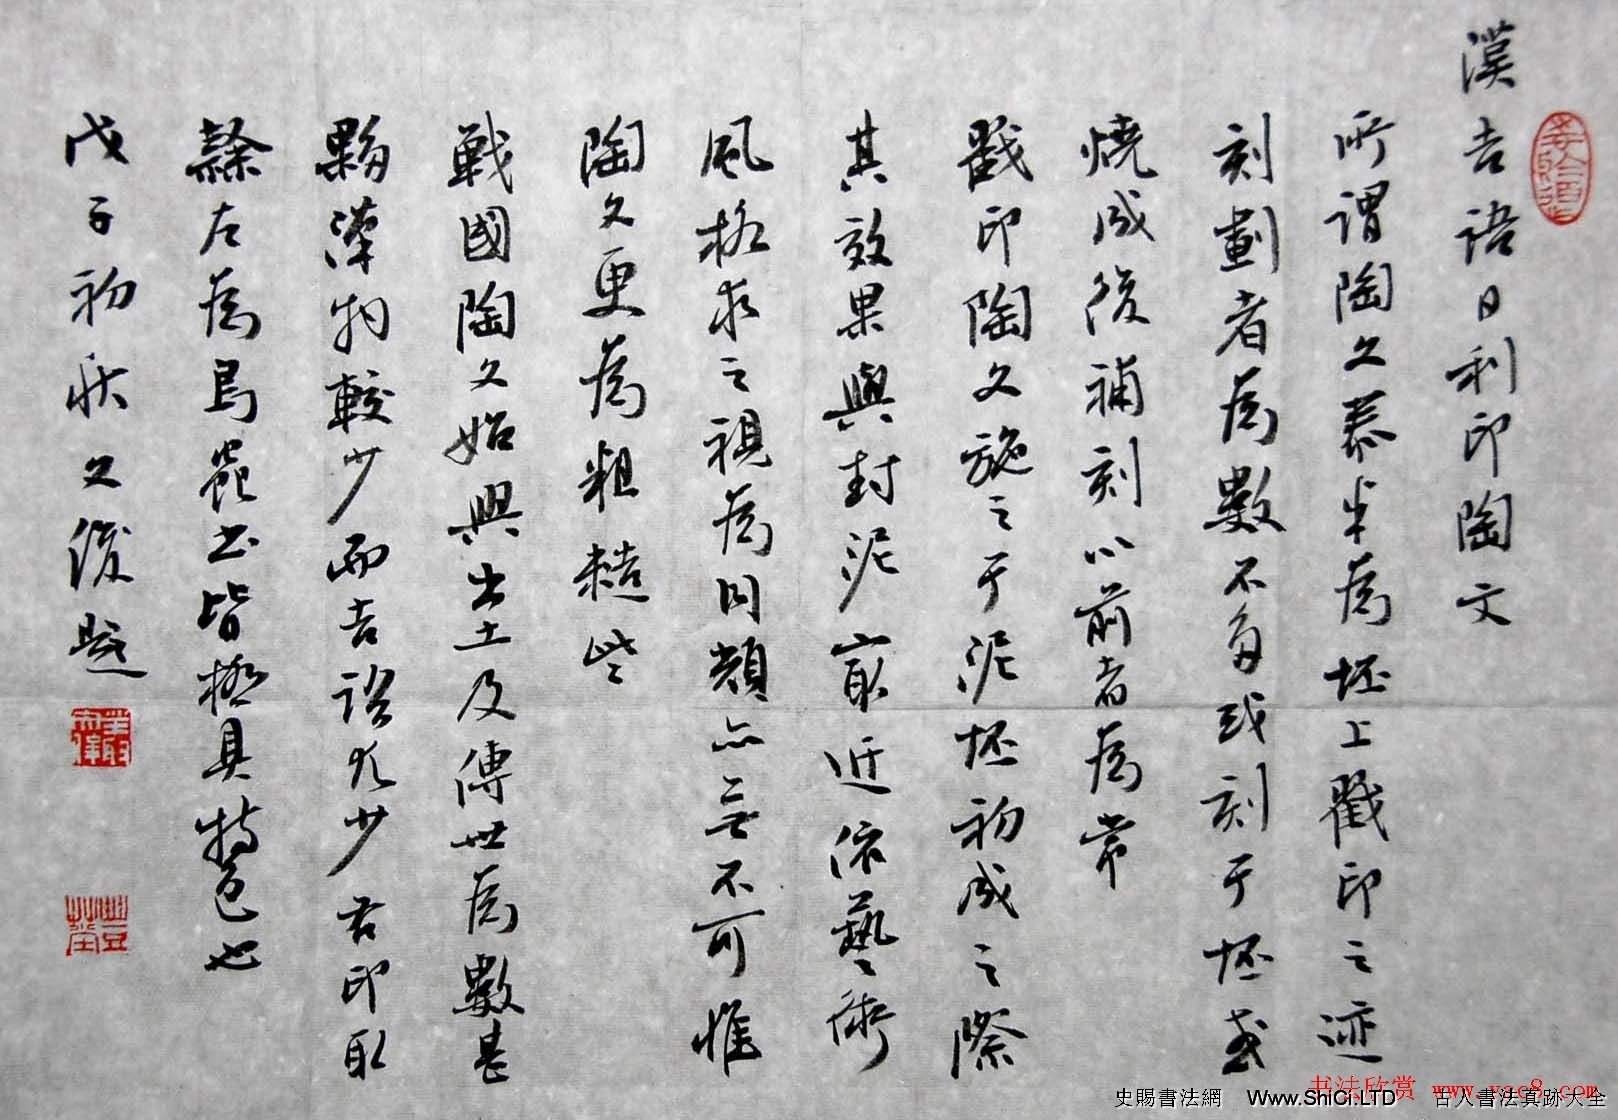 漢吉語日利印陶文
所謂陶文蓋半為坯上戳印之迹
刻劃者為數不多或刻于坯或
燒成後補刻以前者為常
戳印陶文施之于泥坯初成之際
其效果與封泥最近依藝術
風格求之視為同類亦無不可惟
陶文更為粗糙些
戰國陶文始興出土及傳世為數甚
夥漢物較少而吉語尤少右印取
隸左為鳥蟲書皆極具特色也
戊子初秋文俊題
书法欣赏 www.yac8.com
史賜書法網 Www.ShiCi.LTD 古人書法真跡大全